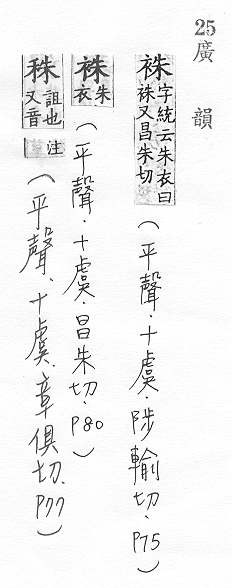 25廣韻
袾字統云朱衣曰袾又昌朱切(平聲．十虞．陟輸切．P75)
袾朱衣(平聲．十虞．昌朱切．P80)
祩詛也又音注(平聲．十虞．章俱切．P77)